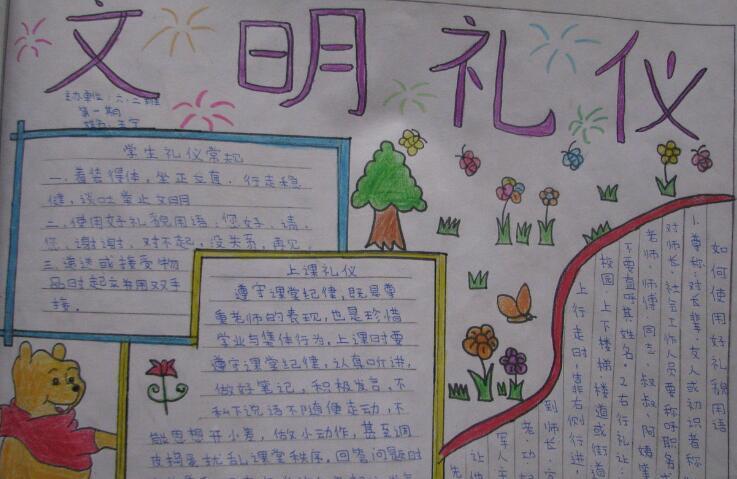 文明礼仪
主办单位:六.二班
第一期
学生礼仪常规
一.着装得体,坐正立直.行走稳
健,谈吐举止文明
二.使用好礼貌用语:您好.请.
您.谢谢.对不起.没关系.再见.
三.递送或接受物
品时起立并用双手
接。
上课礼仪
遵守课堂纪律,既是尊
重老师的表现,也是珍惜
学业与集体行为,上课时要
遵守课堂纪律,认真听讲,
做好笔记,积极发言,不
私下说话不随便走动,不
做思想开小差,做小动作,甚至调
皮捣蛋扰乱课堂秩序,回答问题时
如何使用好礼貌用语
1.尊称:对长辈.友人或初识者称
对师长.社会工作人员要称呼职务或
老师.师傅.同志.叔叔.阿姨等
不要直呼其姓名。2右行礼让:
校园.上下楼梯.楼道或街道
上行走时,靠右侧行进,
到师长.